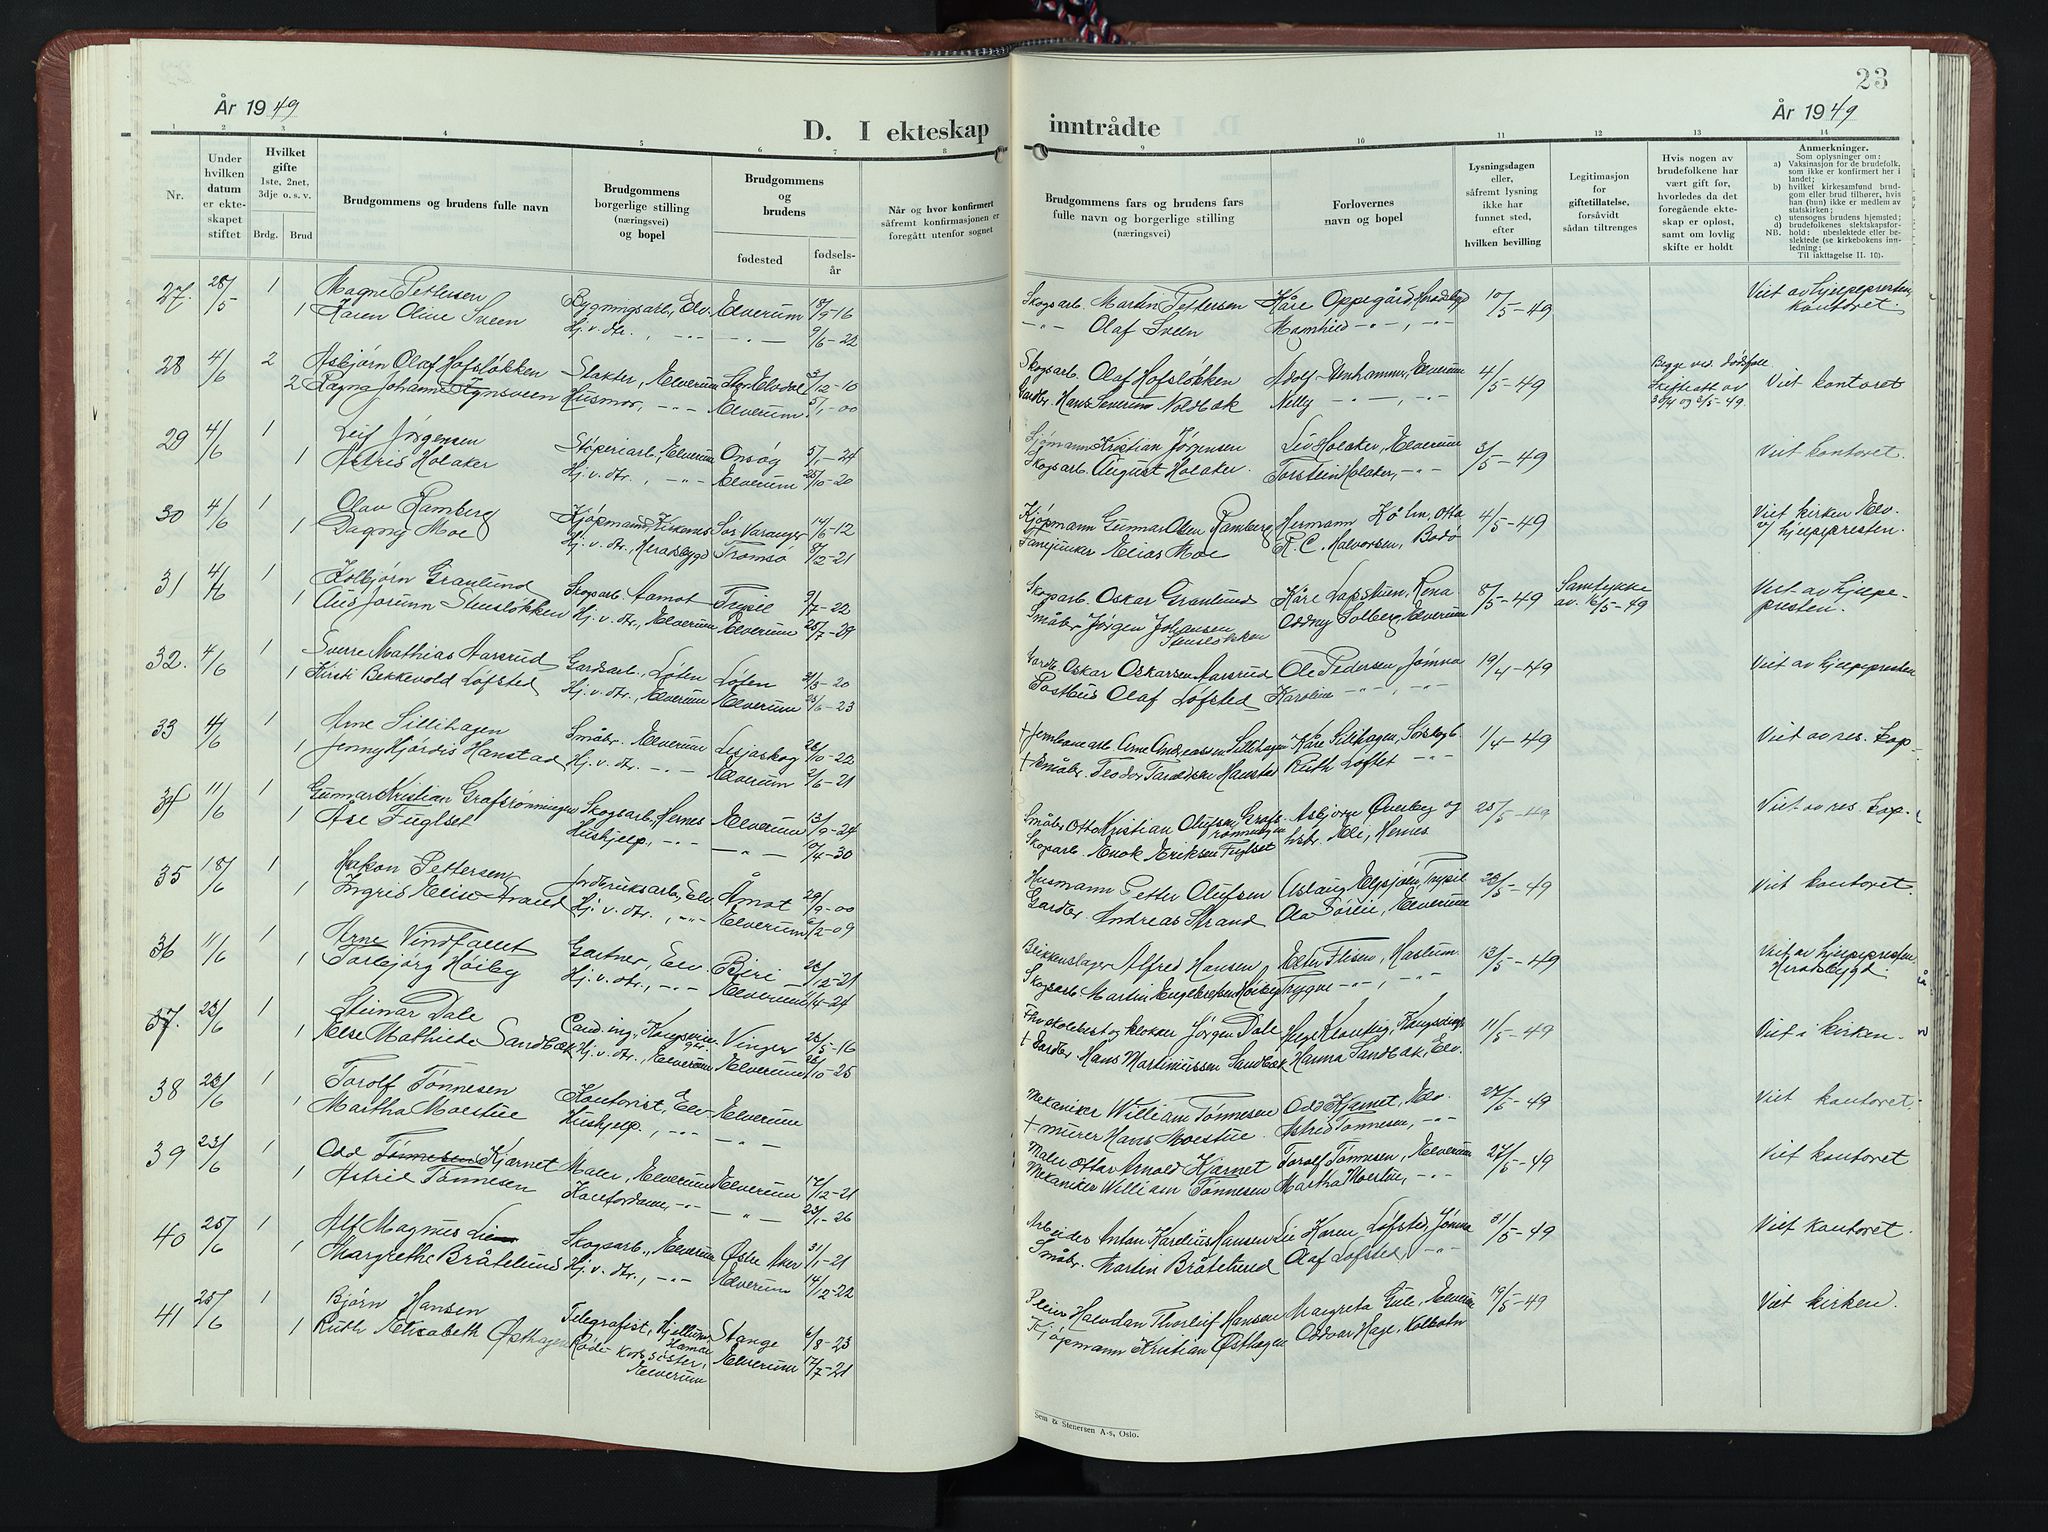 23
År 1949
År 1949
D. I ekteskap inntrådte
1 2 3 4 5 6 7 8 9 10 11 12 13 14
Nr.
Under hvilken datum er ekteskapet stiftet
Hvilket gifte 1ste, 2net, 3dje o. s. v.
Brdg. Brud
Brudgommens og brudens fulle navn
Brudgommens borgerlige stilling (næringsvei) og bopel
Brudgommens og brudens
fødested
fødselsår
Når og hvor konfirmert såfremt konfirmasjonen er foregått utenfor sognet
Brudgommens fars og brudens fars fulle navn og borgerlige stilling (næringsvei)
Forlovernes navn og bopel
Lysningsdagen eller, såfremt lysning ikke har funnet sted, efter hvilken bevilling
Legitimasjon for giftetillatelse, forsåvidt sådan tiltrenges
Hvis nogen av brudefolkene har vært gift før, hvorledes da det foregående ekteskap er opløst, samt om lovlig skifte er holdt
Anmerkninger.
Som oplysninger om:
a) Vaksinasjon for de brudefolk, som ikke er konfirmert her i landet;
b) hvilket kirkesamfund brudgom eller brud tilhører, hvis han (hun) ikke er medlem av statskirken;
c) utensogns brudens hjemsted;
d) brudefolkenes slektskapsforhold: ubeslektede eller beslektede (se kirkebokens innledning:
NB. Til iakttagelse II. 10).
27. 28/5 1 Magne Pettersen Bygningsarb., Elv. Elverum 18/9-16 Skogsarb. Martin Pettersen Kåre Oppegård, Heradsbygd 10/5-49 Viet av hjelpepresten, kontoret.
1 Karen Oline Sveen Hj. v. dtr., -"- -"- 9/6-22 -"- Olaf Sveen Magnhild -"-, -"-
28 4/6 2 Asbjørn Olaf Hofsløkken Slakter, Elverum Stor-Elvdal 3/12-10 Skogsarb. Olaf Hofsløkken Adolf Stenhammer, Elverum 4/5-49 Begge ved dødsfall Skifteatt av 30/4 og 3/5-49. Viet kontoret
2 Ragna Johanne Fynsveen Husmor, -"- Elverum 5/1-00 Gardbr. Hans Severin Noldbak Nelly -"-, -"-
29 4/6 1 Leif Jørgensen Støperiarb., Elverum Onsøy 5/7-24 Sjømann Kristian Jørgensen Liv Holaker, Elverum 3/5-49 Viet kontoret.
1 Astrid Holaker Hj. v. dtr., -"- Elverum 25/10-20 Skogsarb. August Holaker. Torstein Holaker, -"-
30 4/6 1 Olav Ramberg Kjøpmann, Kirkenes Sør-Varanger 14/6-12 Kjøpmann Gunnar Olsen Ramberg Hermann Holm, Otta 4/5-49 Viet kirken Elv. v/ hjelpepresten.
1 Dagny Moe Hj. v. dtr., Heradsbygd Tromsø 8/12-21 Fanejunker Elias Moe R. C. Halvorsen, Bodø
31 4/6 1 Kolbjørn Granlund Skogsarb. Aamot Trysil 9/7-22 Skogsarb. Oskar Granlund Kåre Løpstuen, Rena 8/5-49 Samtykke av 16/5-49 Viet av hjelpepresten.
1 Aud Jorunn Stensløkken Hj. v. dtr., Elverum Elverum 25/7-29 Småbr. Jørgen Johansen Stensløkken Oddny Solberg, Elverum
32. 4/6 1 Sverre Mathias Aarsrud Gardsarb., Løten Løten 31/5-20 Gardbr. Oskar Oskarsen Aarsrud Ole Pedersen, Jømna 19/4-49 Viet av hjelpepresten
1 Kirsti Bekkevold Løfsted Hj. v. dtr., Elverum Elverum 25/6-23 Postbud Olaf Løfsted Karoline -"-, -"-
33 4/6 1 Arne Sillihagen Småbr. Elverum Lesjaskog 26/10-22 + Jernbanearb. Arne Andreassen Sillihagen Kåre Sillihagen, Sørskogb. 1/4-49 Viet av res. kap.
1 Jenny Hjørdis Hanstad Hj. v. dtr. -"- Elverum 2/6-21 + Småbr. Teodor Taraldsen Hanstad Ruth Løftet -"-
34 11/6 1 Gunnar Kristian Grafsrønningen Skogsarb., Hernes Elverum 13/9-24 Småbr. Otto Kristian Olufsen Grafsrønningen Asbjørn Øverby og 25/5-49 Viet av res. kap.
1 Åse Fuglset Hushjelp, -"- -"- 10/4-30 Skogsarb. Enok Eriksen Fuglset hsbr. Eli, Hernes
35 18/6 1 Håkon Pettersen Jorddriksarb., Elv. Åmot 29/9-00 Husmann Petter Olufsen Aslaug Elgsjøen, Trysil 23/5-49 Viet kontoret.
1 Ingrid Elise Strand Hj. v. dtr., -"- Elverum 6/2-09 Gardbr. Andreas Strand Ola Sørlie, Elverum
36 11/6 1 Arne Vindfallet Gartner, Elv. Biri 23/12-21 Blikkenslager Alfred Hansen Peter Flisen, Haslum. 13/5-49 Viet av hjelpepresten, Heradsbygd.
1 Torbjørg Høiby Hj. v. dtr., -"- Elverum 11/4-24 Skogsarb. Martin Engebretsen Høiby Trygve -"-, -"-
37. 23/6 1 Steinar Dale Cand. ing., Kongsvinger Vinger 23/5-16 Fhv. skolebest. og klokker Jørgen Dale Helge Klanstig, Kongsvinger 11/5-49 Viet i kirken.
1 Else Mathilde Sandbæk Hj. v. dtr., Elverum Elverum 26/10-25 + Gardbr. Hans Martinussen Sandbæk Hanna Sandbæk, Elv.
38 23/6 1 Torolf Tønnesen Kontorist, Elv. Elverum Mekaniker William Tønnesen Odd Kjærnet, Elv. 27/5-49 Viet kontoret.
1 Martha Moestue Hushjelp., -"- -"- + murer Hans Moestue. Astrid Tønnesen, -"-
39 23/6 1 Odd Tønnesen Kjærnet Maler, Elverum Elverum 17/12-21 Maler Ottar Arnold Kjærnet Torolf Tønnesen, Elverum 27/5-49 Viet kontoret
1 Astrid Tønnesen Kontordame, -"- -"- 23/1-26 Mekaniker William Tønnesen Martha Moestue, -"-
40 25/6 1 Alf Magnus Lie Skogsarb., Elverum Østre Aker 31/1-21 Arbeider Anton Karelius Hansen Lie Karen Løfsted, Jømna 31/5-49 Viet kontoret.
1 Margrethe Bråtelund Hj. v. dtr., -"- Elverum 14/12-22 Småbr. Martin Bråtelund Olaf Løfsted, -"-
41 25/6 1 Bjørn Hansen Telegrafist, Kjellum Hamar Stange 6/8-23 Pleier Halvdan Thorleif Hansen Margreta Gule, Elverum 19/5-49 Viet kirken.
1 Ruth Elisabeth Østhagen Røde Kors søster, Elverum Elverum 17/7-21 Kjøpmann Kristian Østhagen Oddvar Hage, Kolbotn
Sem & Stenersen A-s, Oslo.